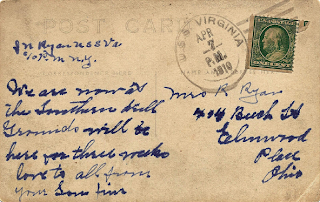 POST CARD
U.S.S. VIRGINIA
APR
7
P.M.
1910
J N Ryan USS Va
P.M. N.Y.
We are now at
The Southern drill
Grounds will be
here for three weeks
love to all from
your Son
Mrs R Ryan
404 Bush St
Elmwood
Place
Ohio